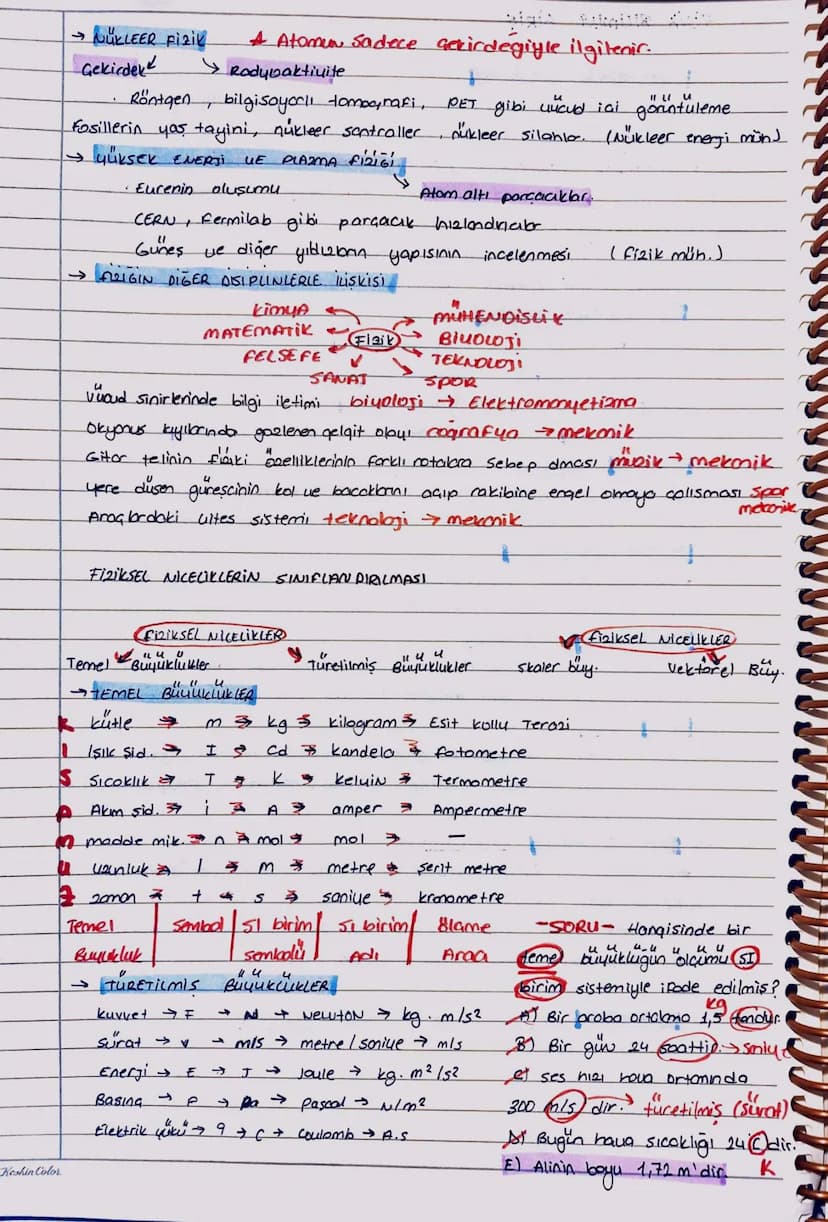 → NÜKLEER FİZİK ★ Atomun sadece çekirdeğiyle ilgilenir.
Çekirdek Radyoaktivite
· Röntgen, bilgisayarlı tomografi, PET gibi vücud içi görüntüleme
Fosillerin yaş tayini, nükleer santraller, nükleer silahlar. (Nükleer enerji müh)
→ YÜKSEK ENERJİ VE PLAZMA FİZİĞİ
· Evrenin oluşumu Atom altı parçacıklar.
CERN, Fermilab gibi parçacık hızlandırıcılar
Güneş ve diğer yıldızların yapısının incelenmesi (Fizik müh.)
→ FİZİĞİN DİĞER DİSİPLİNLERLE İLİŞKİSİ
KİMYA MÜHENDİSLİK
MATEMATİK Fizik BİYOLOJİ
FELSEFE TEKNOLOJİ
SANAT SPOR
Vücud sinirlerinde bilgi iletimi biyoloji → Elektromanyetizma
Okyanus kıyılarında gözlenen gelgit olayı coğrafya → mekanik
Gitar telinin fiziki özelliklerinin farklı notalara sebep olması müzik → mekanik
yere düşen güreşçinin kol ve bacaklarını açıp rakibine engel olmaya çalışması spor
mekanik
Araçlardaki vites sistemi teknoloji → mekanik
FİZİKSEL NİCELİKLERİN SINIFLANDIRILMASI
FİZİKSEL NİCELİKLER FİZİKSEL NİCELİKLER
Temel Büyüklükler Türetilmiş Büyüklükler Skaler büy. Vektörel Büy.
→ TEMEL BÜYÜKLÜKLER
K kütle → m → kg → kilogram → Eşit kollu Terazi
I Işık şid. → I → Cd → kandela → fotometre
S Sıcaklık → T → K → kelvin → Termometre
A Akım şid. → i → A → amper → Ampermetre
m madde mik. → n → mol → mol → —
U uzunluk → l → m → metre → şerit metre
Z zaman → t → s → saniye → kronometre
Temel Sembol SI birim SI birim Ölçme
Büyüklük sembolü Adı Aracı
→ TÜRETİLMİŞ BÜYÜKLÜKLER
kuvvet → F → N → NEWTON → kg. m/s²
Sürat → v → m/s → metre/saniye → m/s
Enerji → E → J → Joule → kg. m²/s²
Basınç → P → Pa → pascal → N/m²
Elektrik yükü → q → C → Coulomb → A.s
-SORU- Hangisinde bir
temel büyüklüğün ölçümü SI
birim sistemiyle ifade edilmiş?
kg
A) Bir araba ortalama 1,5 tondur.
B) Bir gün 24 saattir. → saniye
C) ses hızı hava ortamında
300 m/s dir. → türetilmiş (sürat)
D) Bugün hava sıcaklığı 24 C dir.
E) Alinin boyu 1,72 m'dir. K
Keskin Color